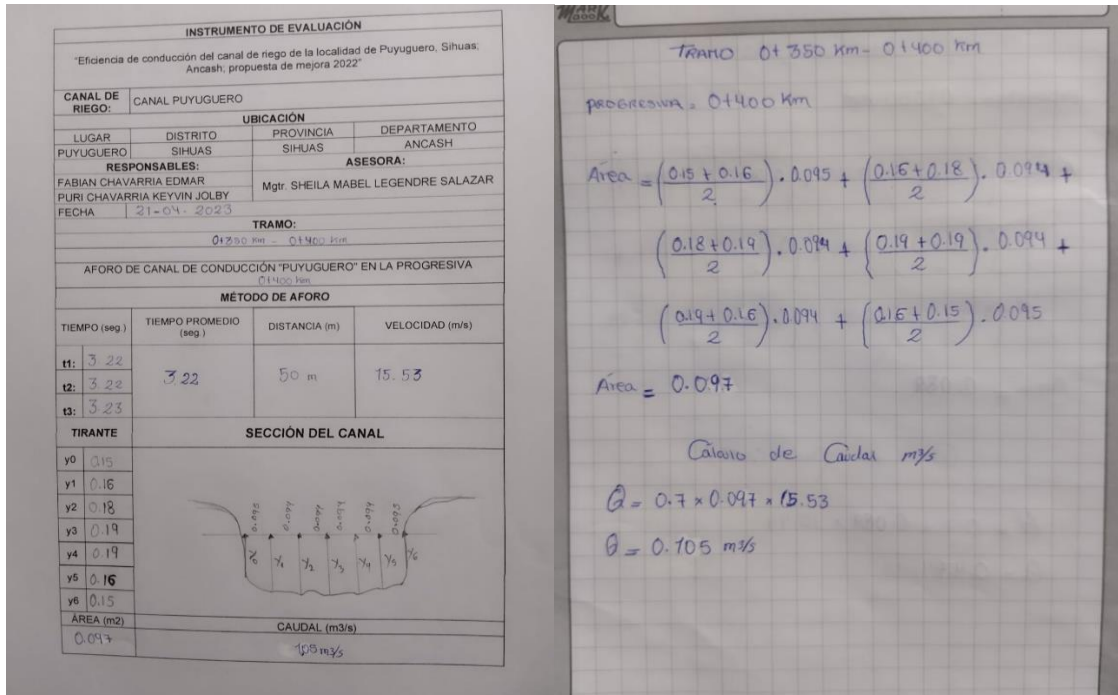 INSTRUMENTO DE EVALUACIÓN
"Eficiencia de conducción del canal de riego de la localidad de Puyuguero, Sihuas;
Ancash; propuesta de mejora 2022"
CANAL DE RIEGO: CANAL PUYUGUERO
UBICACIÓN
LUGAR DISTRITO PROVINCIA DEPARTAMENTO
PUYUGUERO SIHUAS SIHUAS ANCASH
RESPONSABLES: ASESORA:
FABIAN CHAVARRIA EDMAR
PURI CHAVARRIA KEYVIN JOLBY
Mgtr. SHEILA MABEL LEGENDRE SALAZAR
FECHA 21-04-2023
TRAMO:
0+350 Km - 0+400 Km
AFORO DE CANAL DE CONDUCCIÓN "PUYUGUERO" EN LA PROGRESIVA
0+400 km
MÉTODO DE AFORO
TIEMPO (seg.) TIEMPO PROMEDIO (seg.) DISTANCIA (m) VELOCIDAD (m/s)
t1: 3.22
t2: 3.22
t3: 3.23
3.22 50 m 15.53
TIRANTE SECCIÓN DEL CANAL
y0 0.15
y1 0.16
y2 0.18
y3 0.19
y4 0.19
y5 0.16
y6 0.15
0.095 0.094 0.094 0.094 0.094 0.095
y0 y1 y2 y3 y4 y5 y6
ÁREA (m2) CAUDAL (m3/s)
0.097 105 m3/s
TRAMO 0+350 Km - 0+400 Km
PROGRESIVA = 0+400 Km
Área = (0.15 + 0.16 / 2) . 0.095 + (0.16 + 0.18 / 2) . 0.094 +
(0.18 + 0.19 / 2) . 0.094 + (0.19 + 0.19 / 2) . 0.094 +
(0.19 + 0.16 / 2) . 0.094 + (0.16 + 0.15 / 2) . 0.095
Área = 0.097
Cálculo de Caudal m3/s
Q = 0.7 x 0.097 x 15.53
Q = 0.105 m3/s